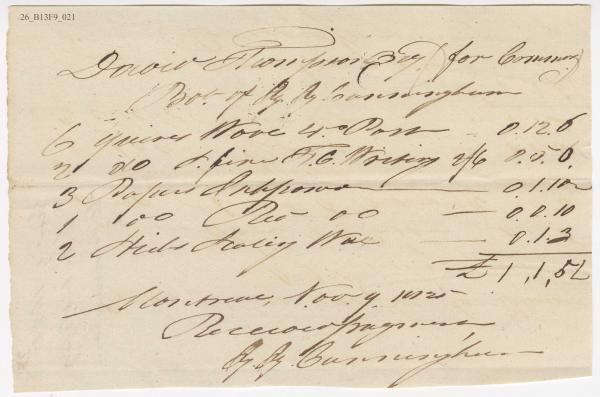 26_B13F9_021
David Thompson Esq. (for Commn.)
Bot. of H. H. Cunningham
6 quires Wove 4to Post 0.12.6
2 do Sfine F.C. Writing 2/6 0.5.0
3 Papers Inkpowder — 0.1.10½
1 do Red do — 0.0.10
2 Sticks Sealing Wax — 0.1.3
£1,1,5½
Montreal, Nov. 9 1825
Received payment,
H. H. Cunningham